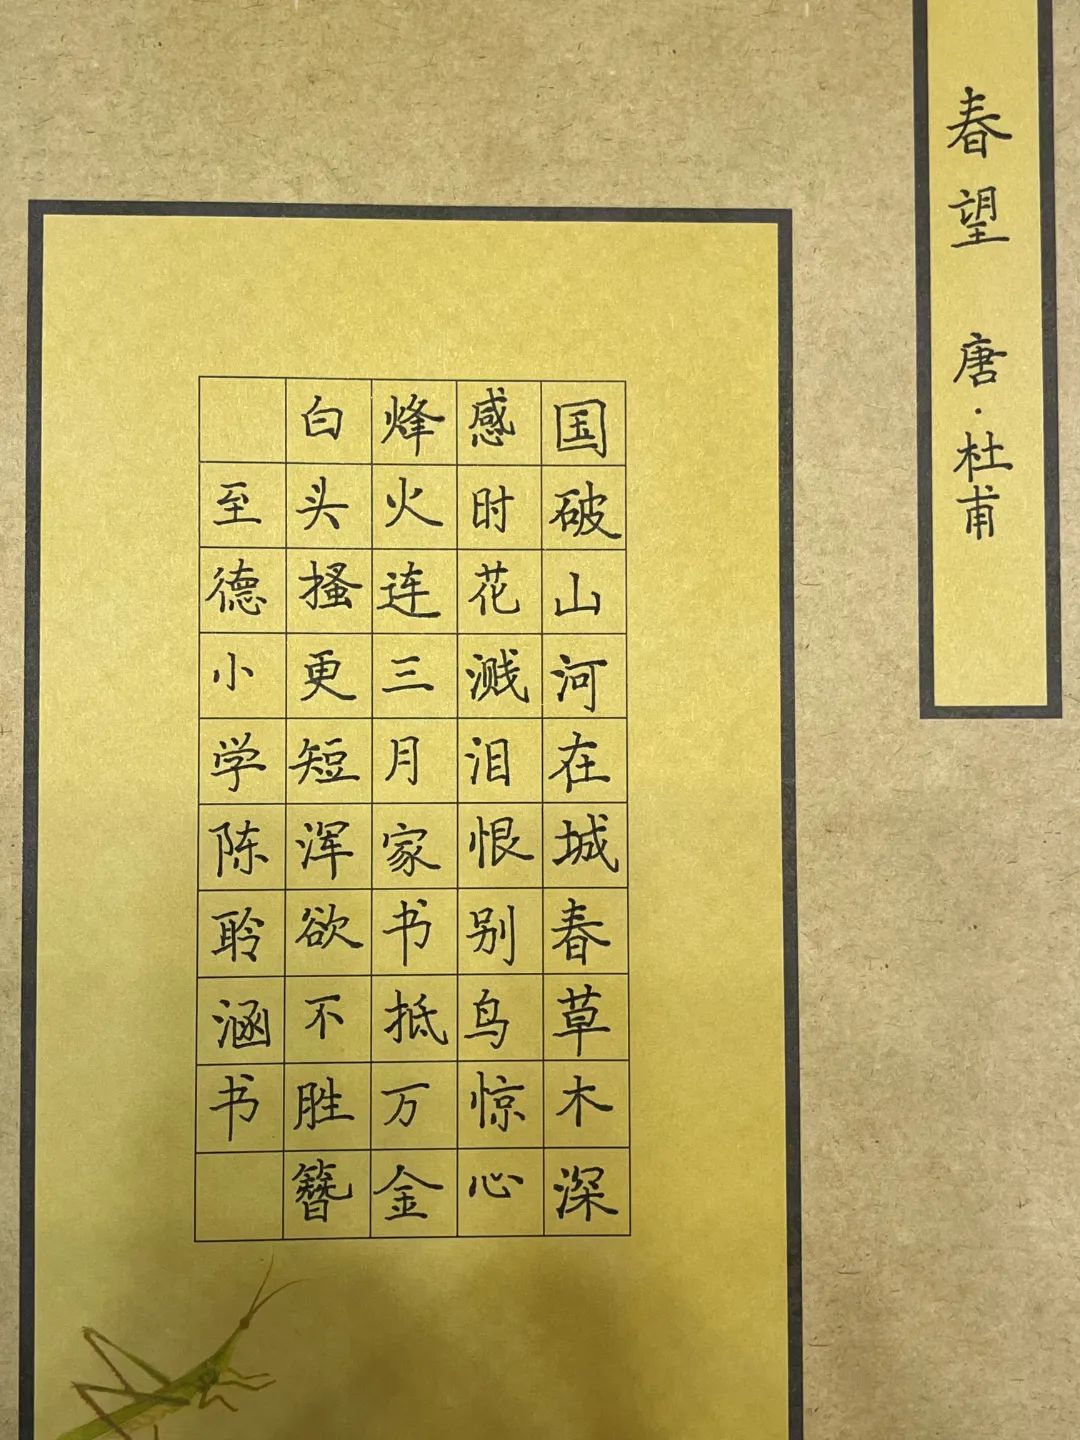 春望 唐·杜甫
国破山河在城春草木深
感时花溅泪恨别鸟惊心
烽火连三月家书抵万金
白头搔更短浑欲不胜簪
至德小学陈聆涵书